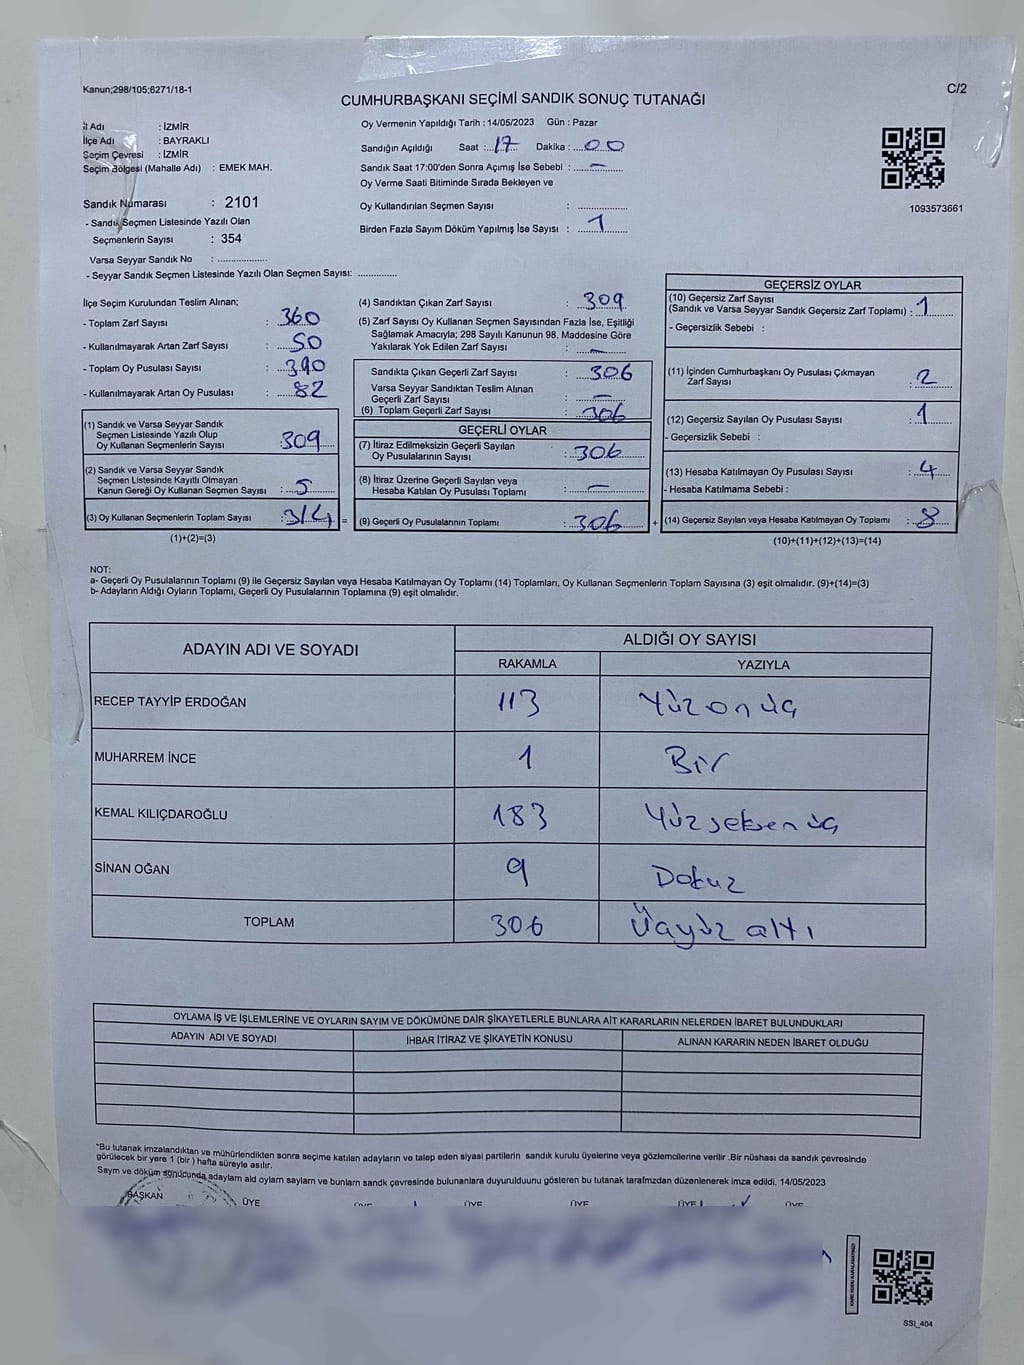 Kanun;298/105;6271/18-1
C/2
CUMHURBAŞKANI SEÇİMİ SANDIK SONUÇ TUTANAĞI
İl Adı : İZMİR
İlçe Adı : BAYRAKLI
Seçim Çevresi : İZMİR
Seçim Bölgesi (Mahalle Adı) : EMEK MAH.
Sandık Numarası : 2101
- Sandık Seçmen Listesinde Yazılı Olan
Seçmenlerin Sayısı : 354
Varsa Seyyar Sandık No : ..................
- Seyyar Sandık Seçmen Listesinde Yazılı Olan Seçmen Sayısı: ..............
Oy Vermenin Yapıldığı Tarih : 14/05/2023 Gün : Pazar
Sandığın Açıldığı Saat : 17 Dakika : 00
Sandık Saat 17:00'den Sonra Açımış İse Sebebi : –
Oy Verme Saati Bitiminde Sırada Bekleyen ve
Oy Kullandırılan Seçmen Sayısı : ..................
Birden Fazla Sayım Döküm Yapılmış İse Sayısı : 1
1093573661
İlçe Seçim Kurulundan Teslim Alınan;
- Toplam Zarf Sayısı : 360
- Kullanılmayarak Artan Zarf Sayısı : 50
- Toplam Oy Pusulası Sayısı : 390
- Kullanılmayarak Artan Oy Pusulası : 82
(1) Sandık ve Varsa Seyyar Sandık
Seçmen Listesinde Yazılı Olup
Oy Kullanan Seçmenlerin Sayısı : 309
(2) Sandık ve Varsa Seyyar Sandık
Seçmen Listesinde Kayıtlı Olmayan
Kanun Gereği Oy Kullanan Seçmen Sayısı : 5
(3) Oy Kullanan Seçmenlerin Toplam Sayısı : 314 =
(1)+(2)=(3)
(4) Sandıktan Çıkan Zarf Sayısı : 309
(5) Zarf Sayısı Oy Kullanan Seçmen Sayısından Fazla İse, Eşitliği
Sağlamak Amacıyla; 298 Sayılı Kanunun 98. Maddesine Göre
Yakılarak Yok Edilen Zarf Sayısı : –
Sandıkta Çıkan Geçerli Zarf Sayısı : 306
Varsa Seyyar Sandıktan Teslim Alınan
Geçerli Zarf Sayısı : –
(6) Toplam Geçerli Zarf Sayısı : 306
GEÇERLİ OYLAR
(7) İtiraz Edilmeksizin Geçerli Sayılan
Oy Pusulalarının Sayısı : 306
(8) İtiraz Üzerine Geçerli Sayılan veya
Hesaba Katılan Oy Pusulası Toplamı : –
(9) Geçerli Oy Pusulalarının Toplamı : 306 +
GEÇERSİZ OYLAR
(10) Geçersiz Zarf Sayısı
(Sandık ve Varsa Seyyar Sandık Geçersiz Zarf Toplamı) : 1
- Geçersizlik Sebebi :
(11) İçinden Cumhurbaşkanı Oy Pusulası Çıkmayan
Zarf Sayısı : 2
(12) Geçersiz Sayılan Oy Pusulası Sayısı : 1
- Geçersizlik Sebebi :
(13) Hesaba Katılmayan Oy Pusulası Sayısı : 4
- Hesaba Katılmama Sebebi :
(14) Geçersiz Sayılan veya Hesaba Katılmayan Oy Toplamı : 8
(10)+(11)+(12)+(13)=(14)
NOT:
a- Geçerli Oy Pusulalarının Toplamı (9) ile Geçersiz Sayılan veya Hesaba Katılmayan Oy Toplamı (14) Toplamları, Oy Kullanan Seçmenlerin Toplam Sayısına (3) eşit olmalıdır. (9)+(14)=(3)
b- Adayların Aldığı Oyların Toplamı, Geçerli Oy Pusulalarının Toplamına (9) eşit olmalıdır.
ADAYIN ADI VE SOYADI ALDIĞI OY SAYISI
RAKAMLA YAZIYLA
RECEP TAYYİP ERDOĞAN 113 Yüzonüç
MUHARREM İNCE 1 Bir
KEMAL KILIÇDAROĞLU 183 Yüzseksenüç
SİNAN OĞAN 9 Dokuz
TOPLAM 306 Üçyüz altı
OYLAMA İŞ VE İŞLEMLERİNE VE OYLARIN SAYIM VE DÖKÜMÜNE DAİR ŞİKAYETLERLE BUNLARA AİT KARARLARIN NELERDEN İBARET BULUNDUKLARI
ADAYIN ADI VE SOYADI İHBAR İTİRAZ VE ŞİKAYETİN KONUSU ALINAN KARARIN NEDEN İBARET OLDUĞU
*Bu tutanak imzalandıktan ve mühürlendikten sonra seçime katılan adayların ve talep eden siyasi partilerin sandık kurulu üyelerine veya gözlemcilerine verilir .Bir nüshası da sandık çevresinde
görülecek bir yere 1 (bir ) hafta süreyle asılır.
Sayım ve döküm sonucunda adayların ald oyların sayların ve bunların sandık çevresinde bulunanlara duyurulduunu gösteren bu tutanak tarafmzdan düzenlenerek imza edildi. 14/05/2023
BAŞKAN ÜYE ÜYE ÜYE ÜYE ÜYE
SSİ_404